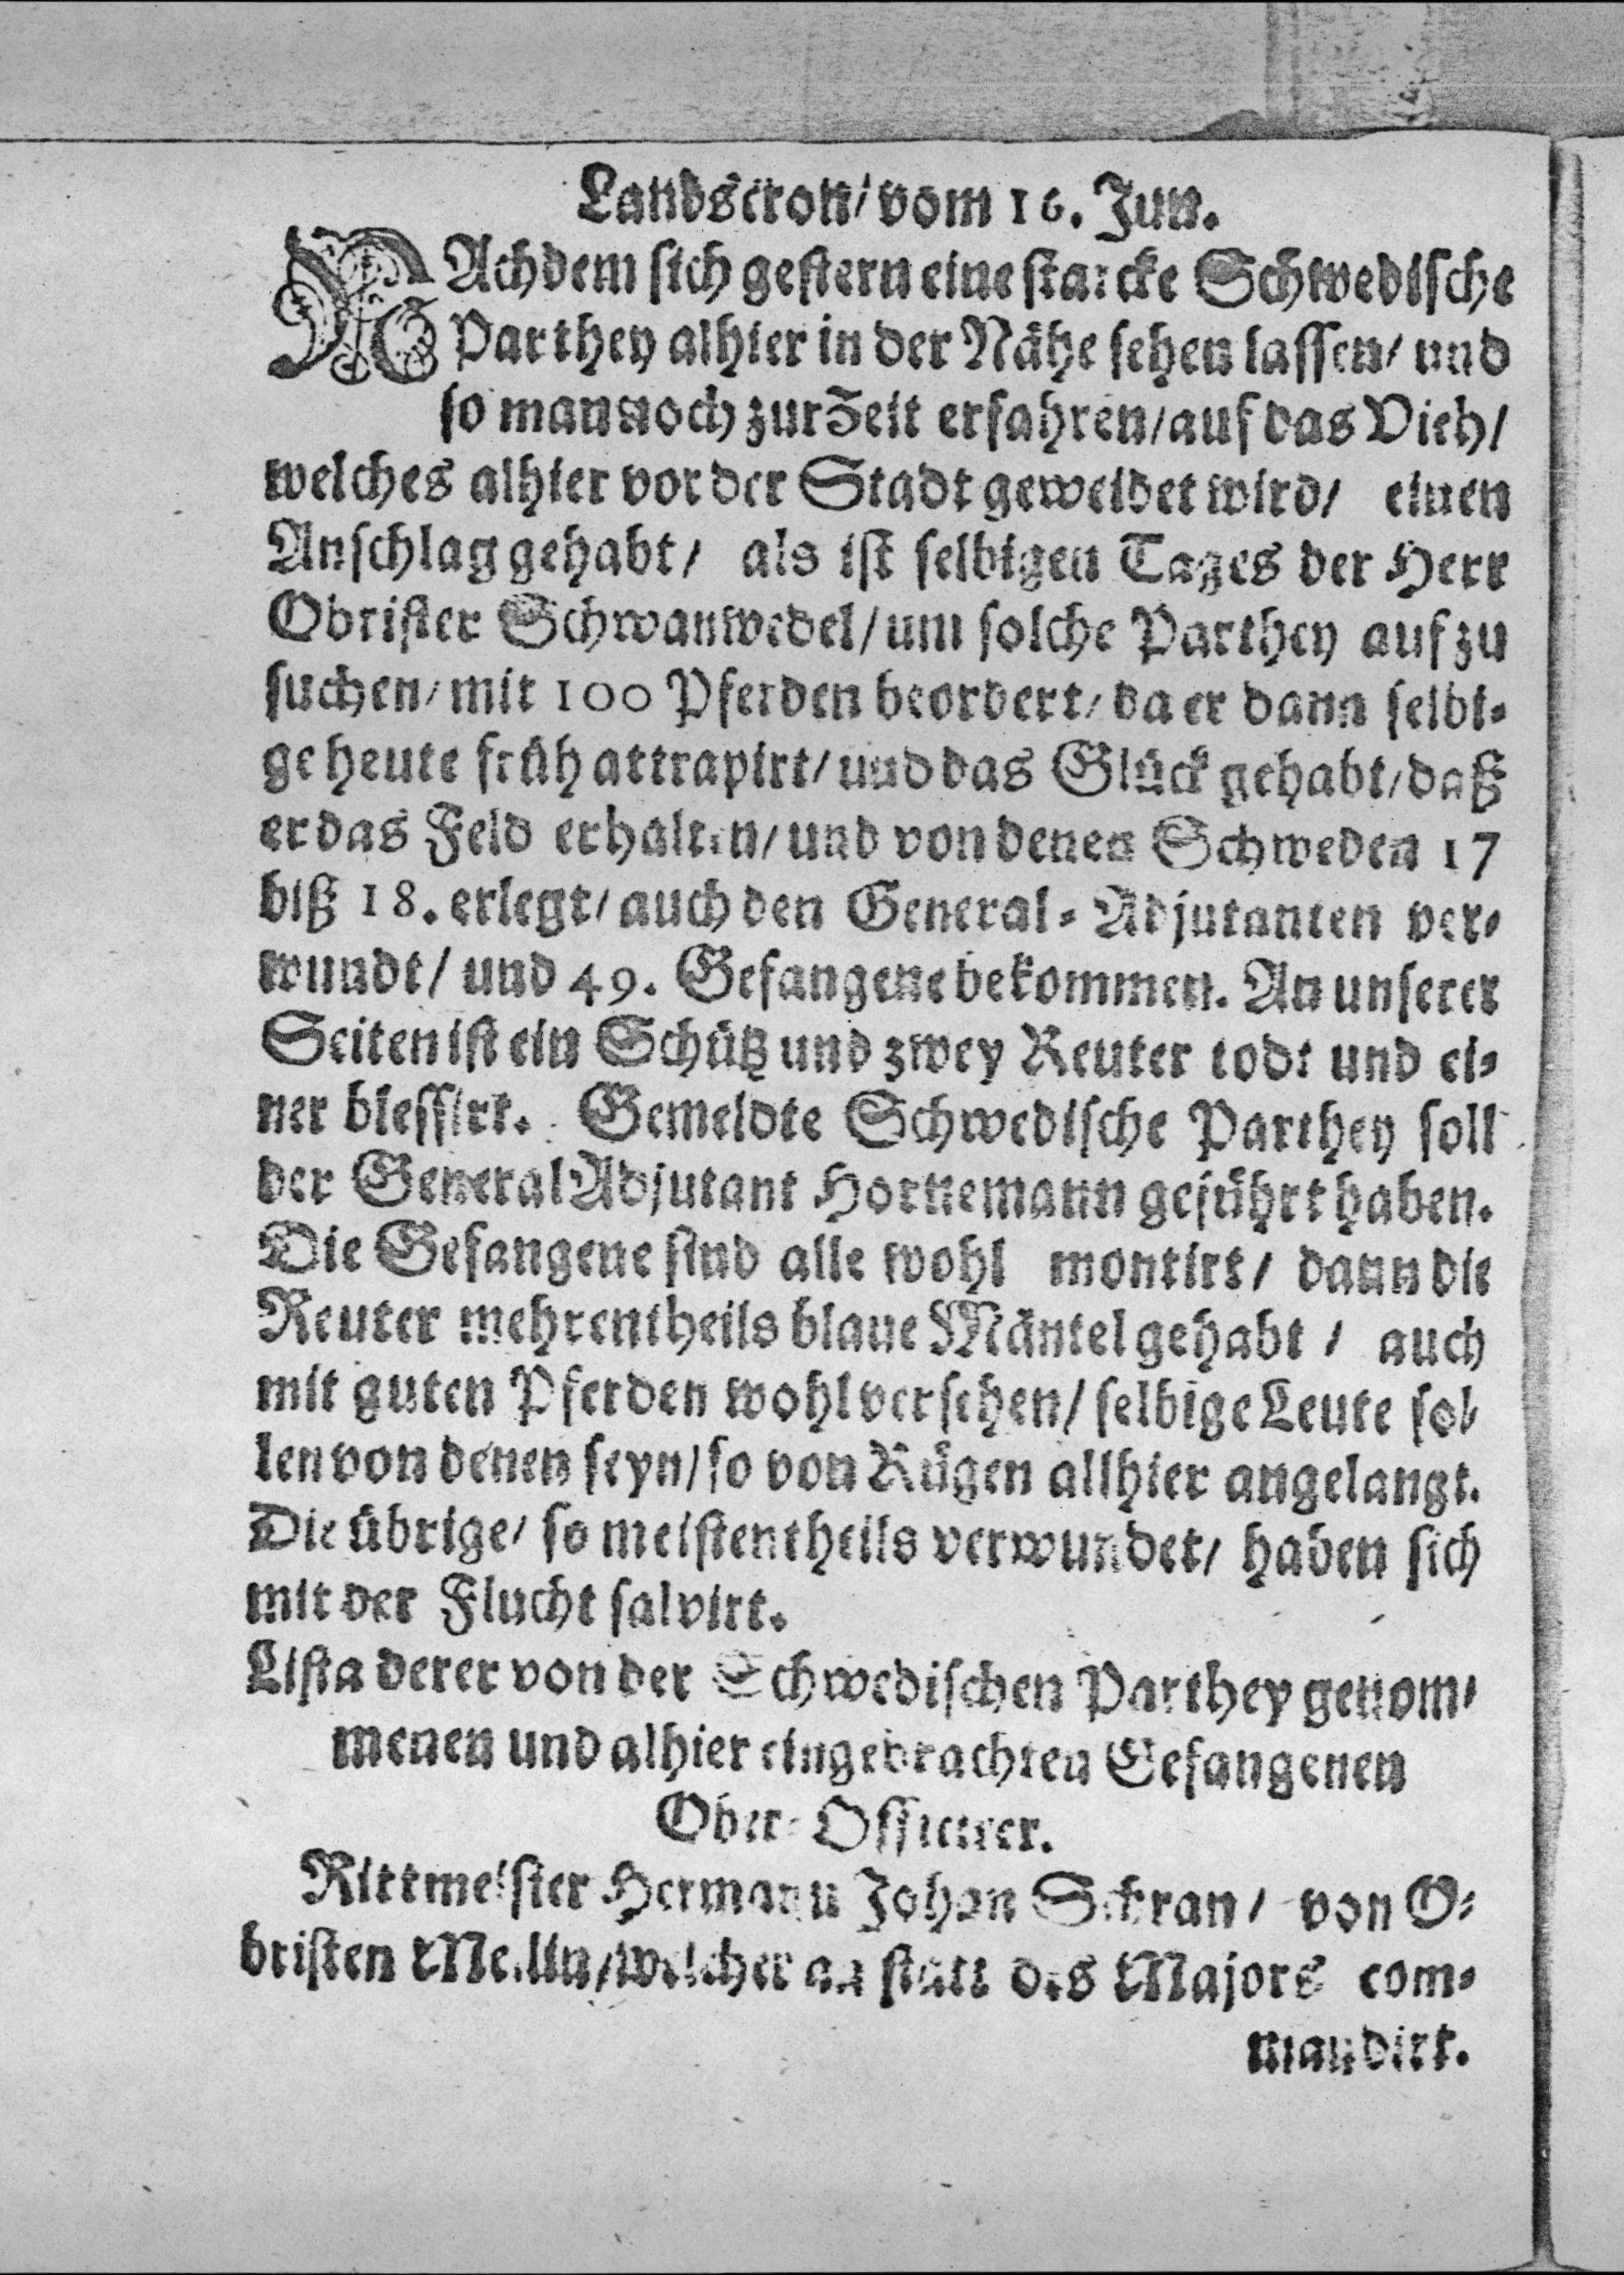 Landscron/ vom 16. Jun.
NAchdem sich gestern eine starcke Schwedische
Parthey alhier in der Nähe sehen lassen/ und
so man noch zur Zeit erfahren/ auf das Vieh/
welches alhier vor der Stadt geweidet wird/ einen
Anschlag gehabt/ als ist selbigen Tages der Herr
Obrister Schwanwedel/ um solche Parthey auf zu
suchen/ mit 100 Pferden beordert/ da er dann selbi-
ge heute früh attrapirt/ und das Glück gehabt/ daß
er das Feld erhalten/ und von denen Schweden 17
biß 18. erlegt/ auch den General-Adjutanten ver-
wundt/ und 49. Gefangene bekommen. An unserer
Seiten ist ein Schütz und zwey Reuter todt und ei-
ner blessirt. Gemeldte Schwedische Parthey soll
der General Adjutant Hornemann geführt haben.
Die Gefangene sind alle wohl montirt/ dann die
Reuter mehrentheils blaue Mäntel gehabt/ auch
mit guten Pferden wohl versehen/ selbige Leute sol-
len von denen seyn/ so von Rügen allhier angelangt.
Die übrige/ so meistentheils verwundet/ haben sich
mit der Flucht salvirt.
Lista derer von der Schwedischen Parthey genom-
menen und alhier eingebrachten Gefangenen
Ober-Officirer.
Rittmeister Hermann Johan / von O-
bristen / welcher an statt des Majors com-
mandirt.